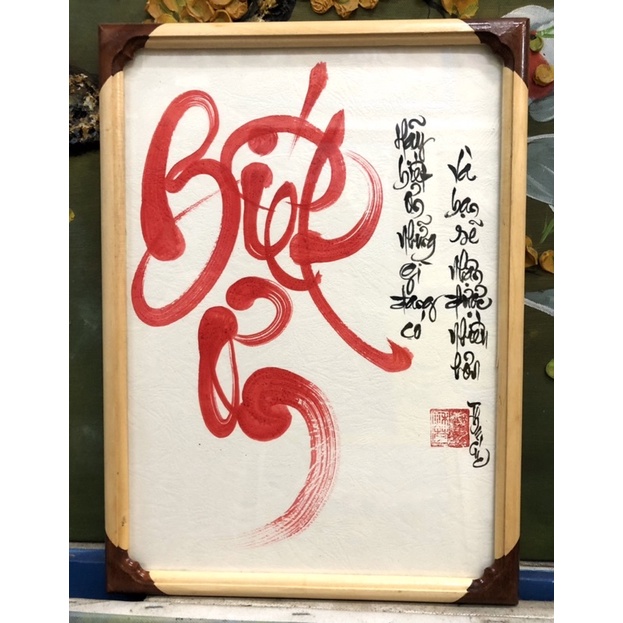 Biết
Ơn
Hãy biết ơn những gì đang có
Và bạn sẽ nhận được nhiều hơn